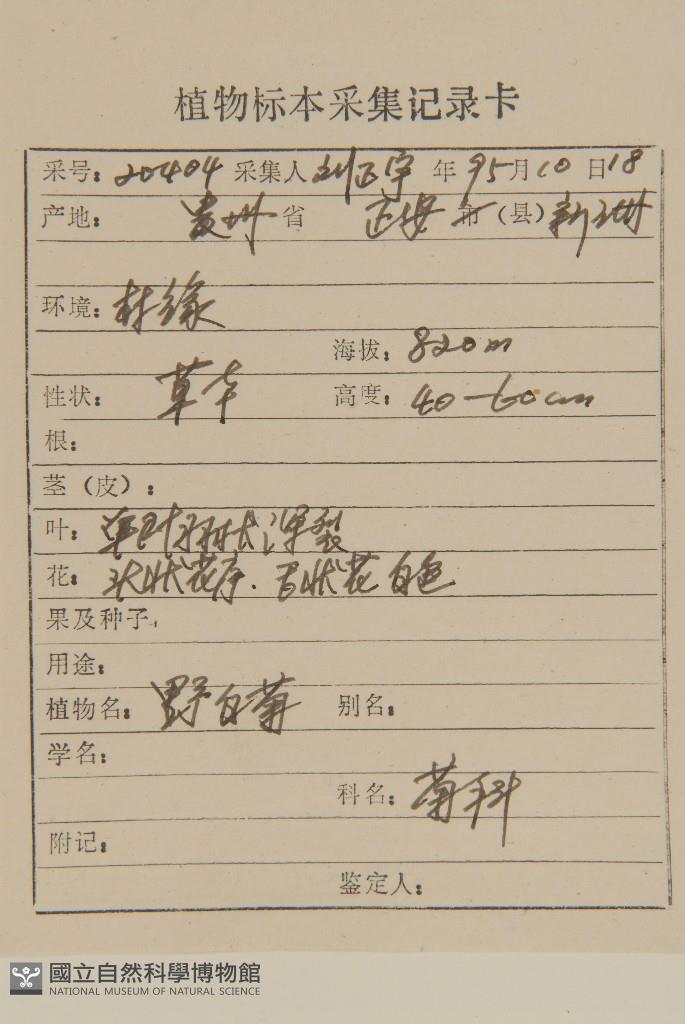 植物标本采集记录卡
采号: 20404 采集人 刘正宇 年 95 月 10 日 18
产地: 贵州 省 正安 市 (县) 新洲
环境: 林缘
海拔: 820m
性状: 草本 高度: 40-60cm
根:
茎 (皮):
叶: 单叶羽状深裂
花: 头状花序. 舌状花白色
果及种子:
用途:
植物名: 野白菊 别名:
学名:
科名: 菊科
附记:
鉴定人:
國立自然科學博物館
NATIONAL MUSEUM OF NATURAL SCIENCE